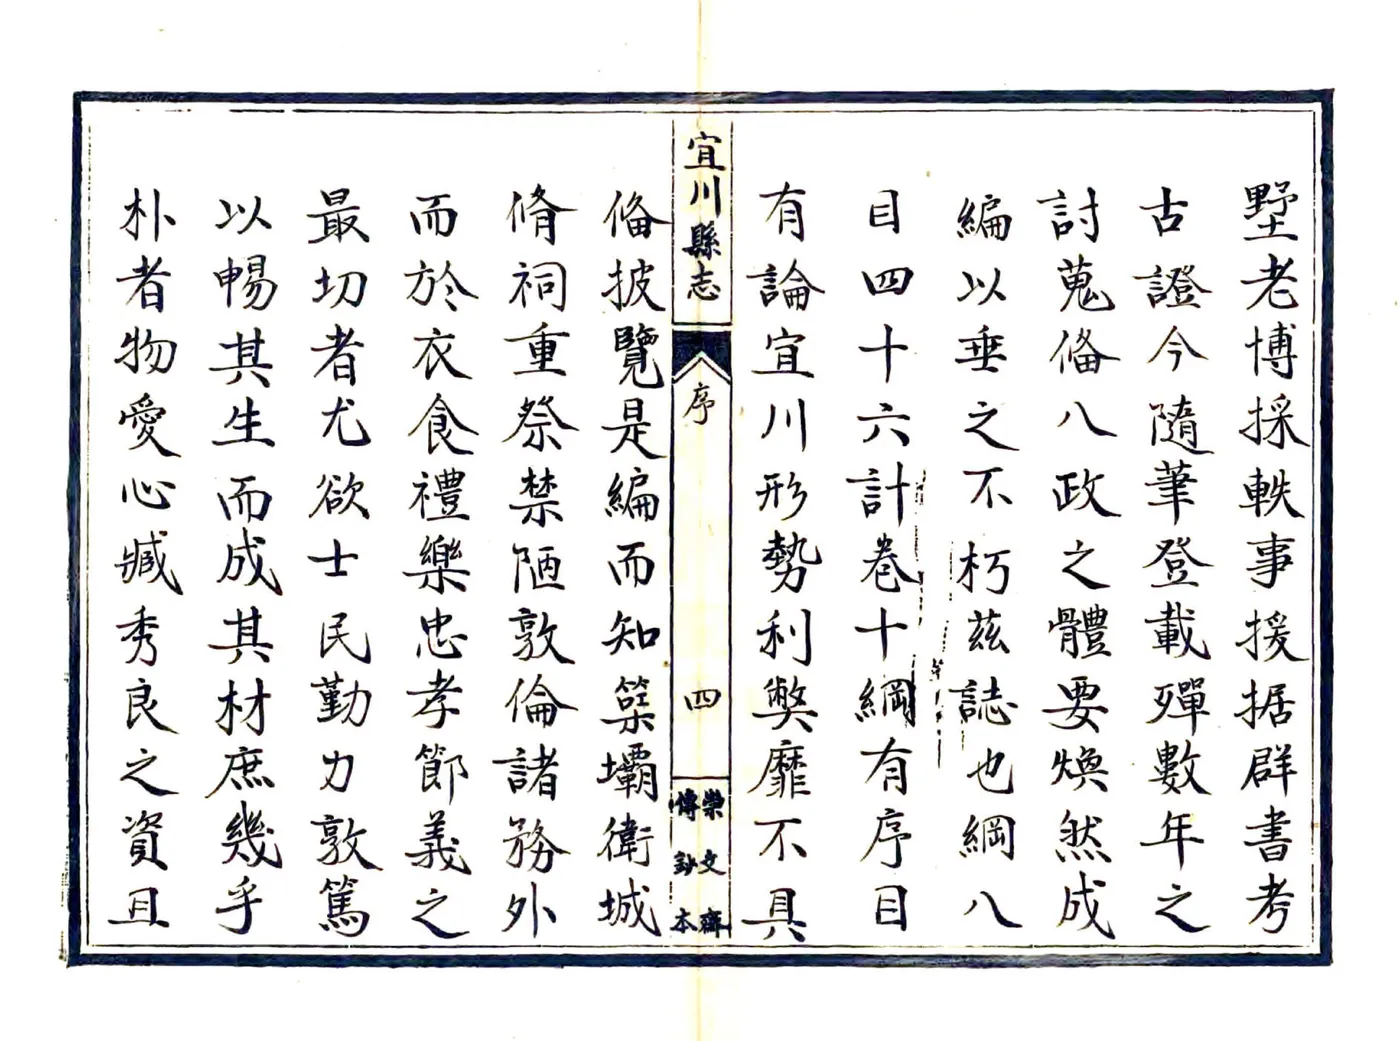 墅老博採軼事援据群書考
古證今隨筆登載殫數年之
討蒐俻八政之體要煥然成
編以垂之不朽茲誌也綱八
目四十六計卷十綱有序目
有論宜川形勢利獘靡不具
宜川縣志
序
四
榮文齋
傳鈔本
俻披覽是編而知築壩衛城
脩祠重祭禁陋敦倫諸務外
而於衣食禮樂忠孝節義之
最切者尤欲士民勤力敦篤
以暢其生而成其材庶幾乎
朴者物愛心臧秀良之資且